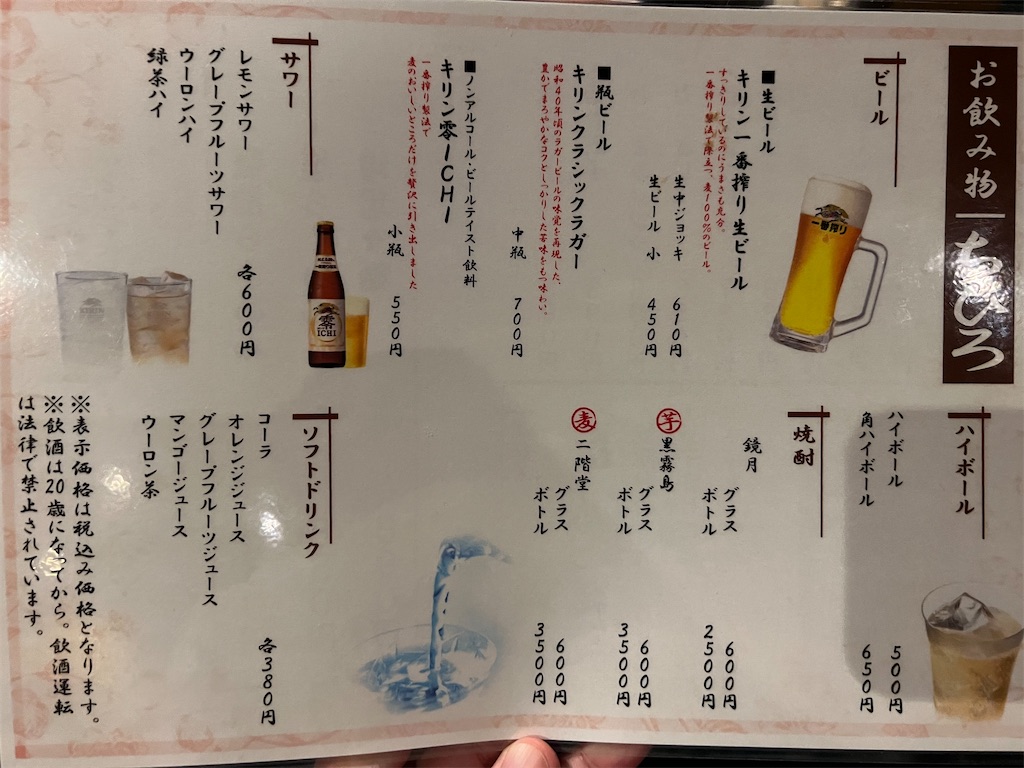 お飲み物
ちひろ
ビール
■生ビール
キリン一番搾り生ビール
すっきりしているのにうまさも充分。
一番搾り製法、麦100%のビール。
生中ジョッキ 610円
生ビール 小 450円
■瓶ビール
キリンクラシックラガー
昭和40年頃のラガービールの味覚を再現した、
豊かでまろやかなコクとしっかりした苦味をもつ味わい。
中瓶 700円
■ノンアルコール・ビールテイスト飲料
キリン零ICHI
一番搾り製法で
麦のおいしいところだけを贅沢に引き出しました
小瓶 550円
サワー
レモンサワー
グレープフルーツサワー
ウーロンハイ
緑茶ハイ
各600円
ハイボール
ハイボール 500円
角ハイボール 650円
焼酎
鏡月
グラス 600円
ボトル 2500円
芋 黒霧島
グラス 600円
ボトル 3500円
麦 二階堂
グラス 600円
ボトル 3500円
ソフトドリンク
コーラ
オレンジジュース
グレープフルーツジュース
マンゴージュース
ウーロン茶
各380円
※表示価格は税込み価格となります。
※飲酒は20歳になってから。飲酒運転
は法律で禁止されています。
一番搾り
零
ICHI
KIRIN